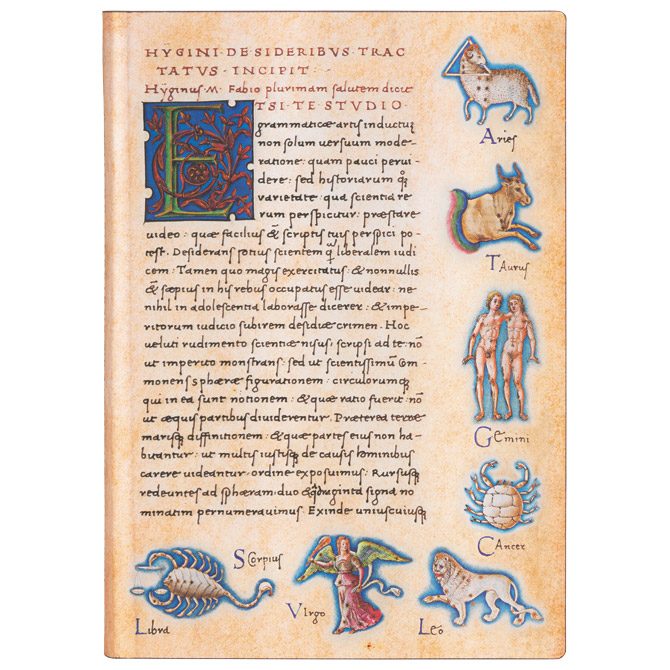 HYGINI·DE·SIDERIBVS·TRAC
TATVS·INCIPIT·
Hÿginus·M· Fabio plurimam salutem dicit
ETSI·TE·STVDIO·
grammaticæ artis inductũ
non solum versuum mode-
ratione: quam pauci pervi-
dere: sed historiarum q̃
varietate qua scientia re
rum perspicitur: præstare
video: quæ facilius & scriptis tuis perspici po-
test. Desiderans potius scientem q̃ liberalem iudi
cem: Tamen quo magis exercitatus: & nonnullis
& sæpius in his rebus occupatus esse videar: ne
nihil in adolescentia laborasse dicerer: & impe-
ritorum iudicio subirem desidiæ crimen. Hoc
veluti rudimento scientiæ nisus: scripsi ad te: nõ
ut imperito monstrans: sed ut scientissimũ com-
monens sphæræ figurationem: circulorumq;
qui in ea sunt notionem: & quæ ratio fuerit nõ
ut æquis partibus dividerentur. Præterea terræ
marisq; diffinitionem: & quæ partes eius non ha-
bitantur: ut multis iustisq; de causis hominibus
carere videantur ordine exposuimus: Rursusq;
redeuntes ad sphæram duo & q̃draginta signa no
minatim pernumeravimus. Exinde uniuscuiusq;
Aries
TAurus
Gemini
CAncer
Leo
VIrgo
Libra
SCorpius